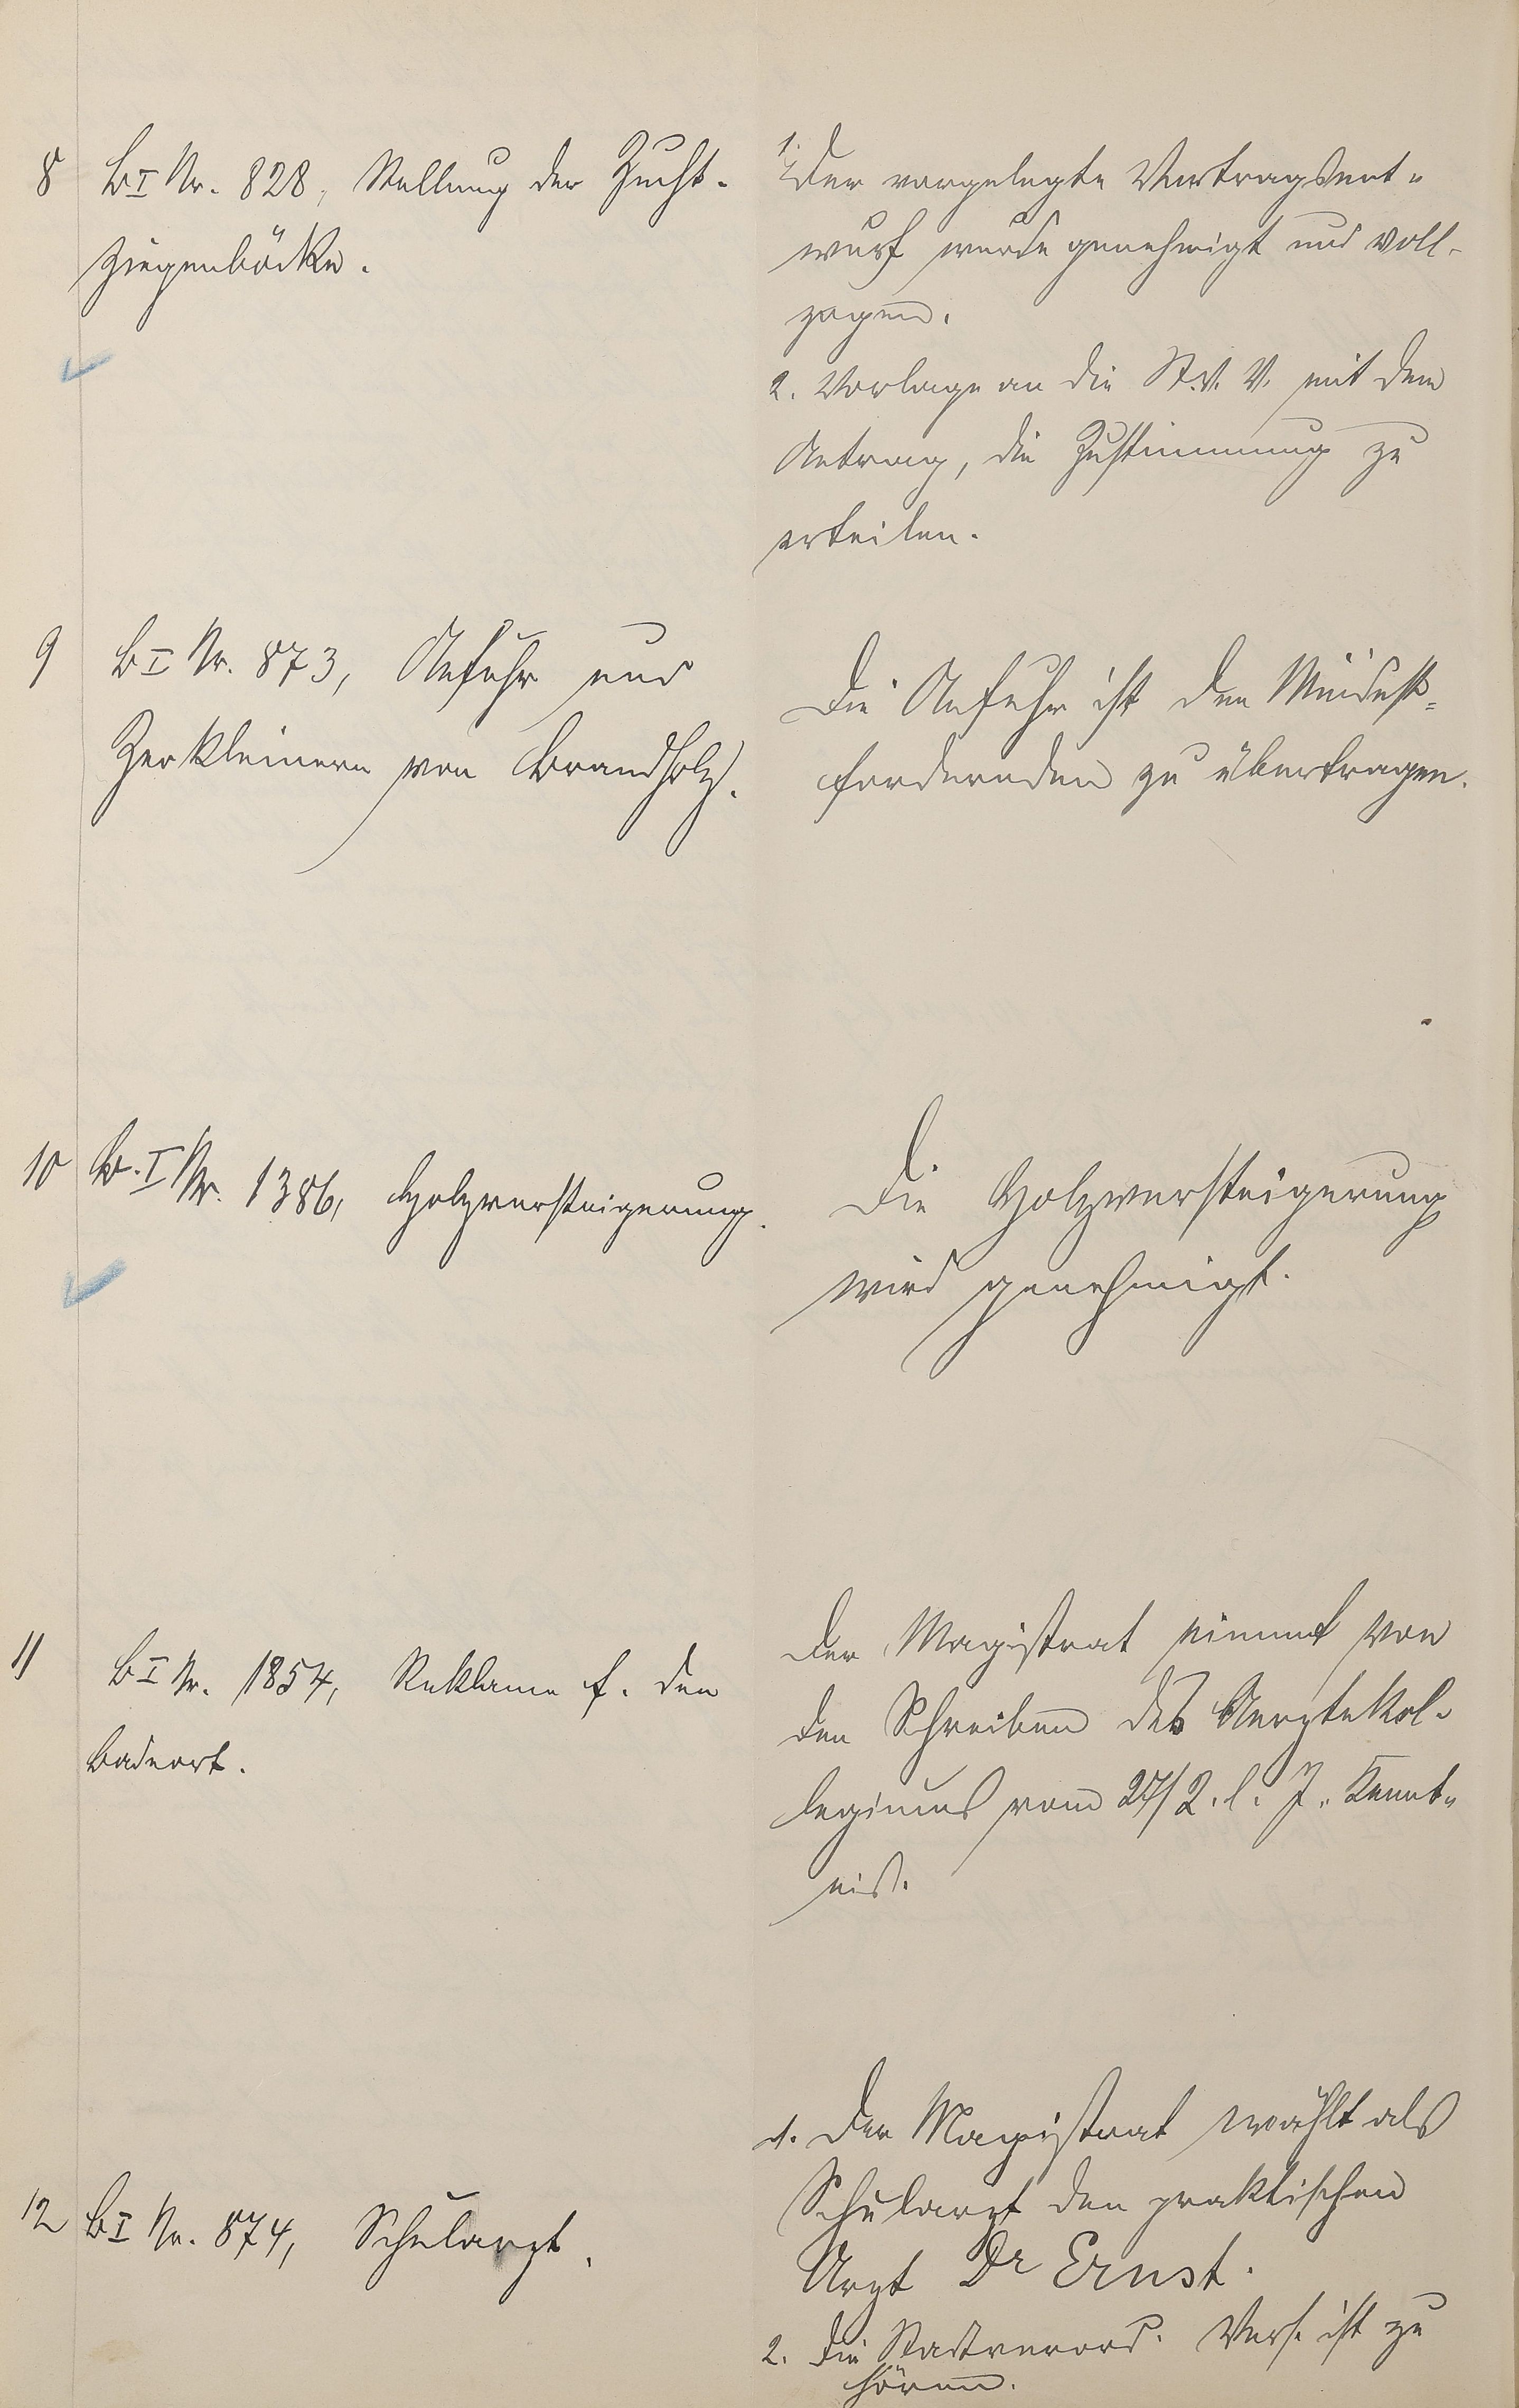 8 B I Nr. 828, Stellung der Zucht-
ziegenböcke.
1. Der vorgelegte Vertragsent-
wurf wurde genehmigt und voll-
zogen.
2. Vorlage an die St. V. V. mit dem
Antrag, die Zustimmung zu
erteilen.
9 B I Nr. 873, Anfuhr und
Zerkleinern von Brandholz.
Die Anfuhr ist dem Mindest-
fordernden zu übertragen.
10 B. I Nr. 1386, Holzversteigerung.
Die Holzversteigerung
wird genehmigt.
11 B I Nr. 1854, Reklame f. den
Badeort.
Der Magistrat nimmt von
dem Schreiben des Aerztekol-
legiums vom 27/2. l. J. Kennt-
nis.
12 B I Nr. 874, Schularzt.
1. Der Magistrat wählt als
Schularzt den praktischen
Arzt Dr Ernst.
2. Die Stadtverord. Vers. ist zu
hören.